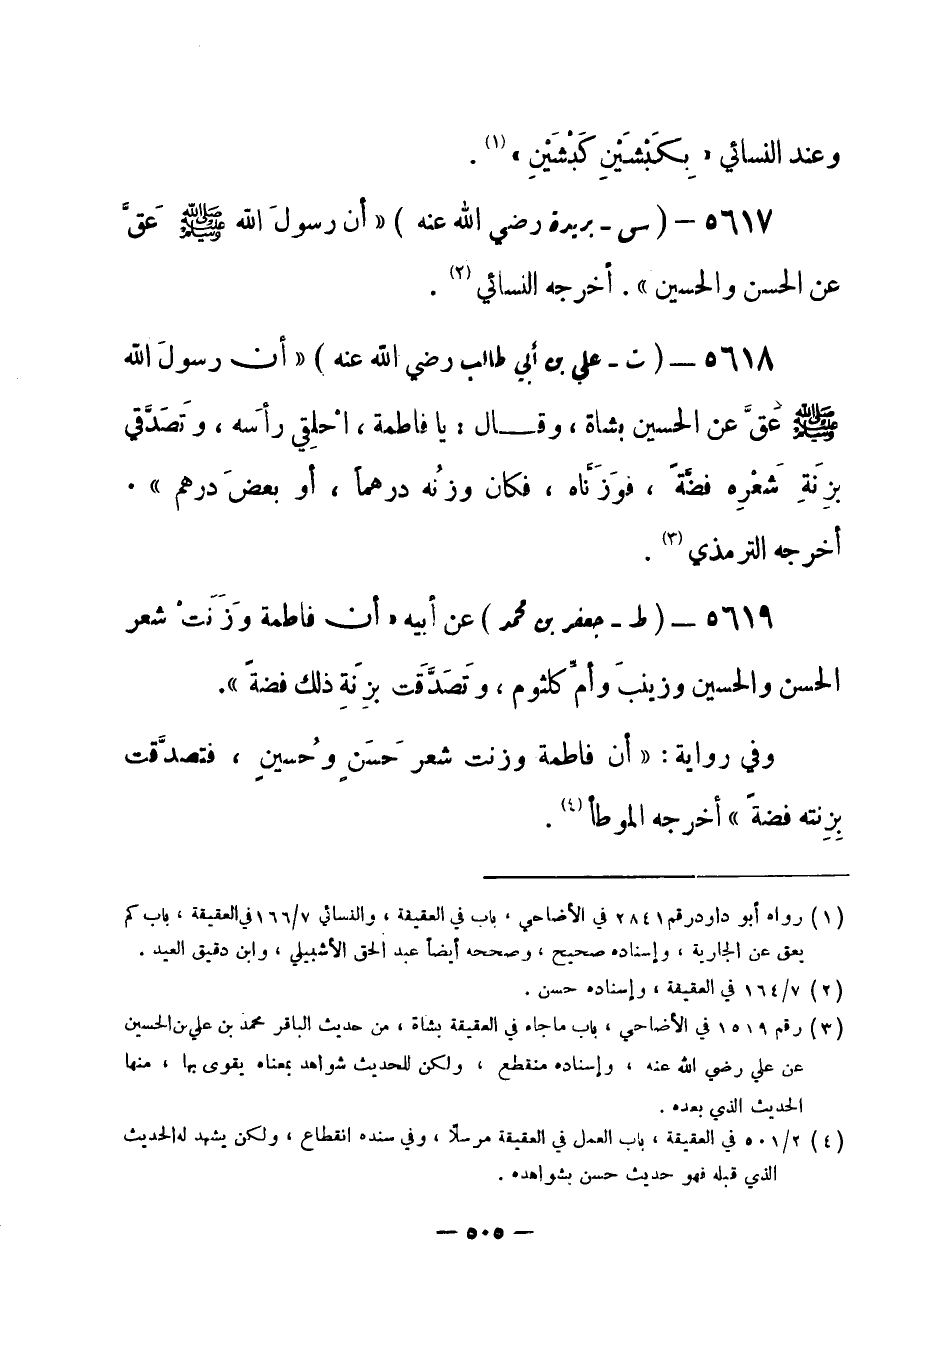 وعند النسائي « بِكَبْشَيْنِ كَبْشَيْنِ » (١) .
٥٦١٧ – ( س - بريدة رضي الله عنه ) « أن رسولَ الله ﷺ عَقَّ
عن الحسن والحسين » . أخرجه النسائي (٢) .
٥٦١٨ – ( ت - علي بن أبي طالب رضي الله عنه ) « أن رسولَ الله
ﷺ عَقَّ عن الحسين بشاة ، وقال : يا فاطمة ، احْلِقي رأسَه ، وتَصَدَّقي
بزِنَةِ شَعْرِه فضَّةً ، فوَزَنَّاه ، فكان وزنُه درهماً ، أو بعضَ درهم » .
أخرجه الترمذي (٣) .
٥٦١٩ – ( ط - جعفر بن محمد ) عن أبيه « أن فاطمة وَزَنَتْ شعر
الحسن والحسين وزينبَ وأمِّ كلثوم ، وتَصَدَّقَت بزِنَةِ ذلك فضةً ».
وفي رواية : « أن فاطمة وزنت شعر حَسَنٍ وحُسينٍ ، فتصدَّقت
بِزِنته فضةً » أخرجه الموطأ (٤) .
(١) رواه أبو داود رقم ٢٨٤١ في الأضاحي ، باب في العقيقة ، والنسائي ١٦٦/٧ في العقيقة ، باب كم
يعق عن الجارية ، وإسناده صحيح ، وصححه أيضاً عبد الحق الأشبيلي ، وابن دقيق العيد .
(٢) ١٦٤/٧ في العقيقة ، وإسناده حسن .
(٣) رقم ١٥١٩ في الأضاحي ، باب ما جاء في العقيقة بشاة ، من حديث الباقر محمد بن علي بن الحسين
عن علي رضي الله عنه ، وإسناده منقطع ، ولكن للحديث شواهد بمعناه يقوى بها ، منها
الحديث الذي بعده .
(٤) ٥٠١/٢ في العقيقة ، باب العمل في العقيقة مرسلاً ، وفي سنده انقطاع ، ولكن يشهد له الحديث
الذي قبله فهو حديث حسن بشواهده .
— ٥٠٥ —